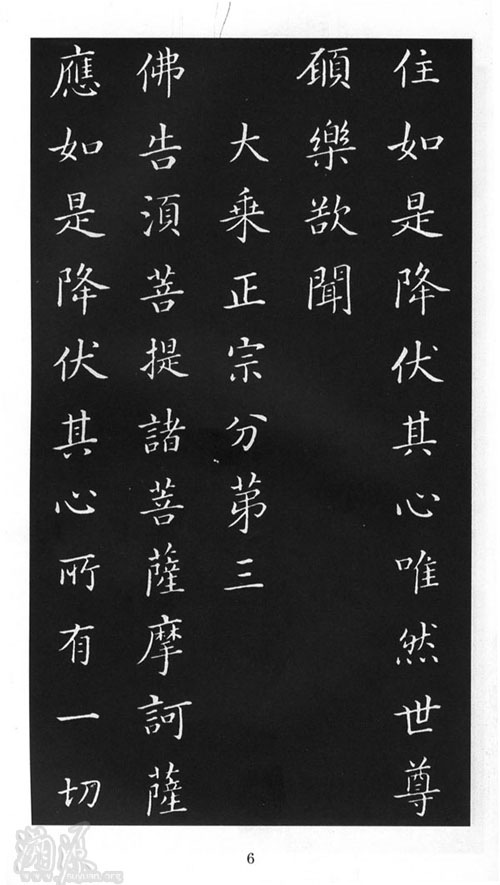 住如是降伏其心唯然世尊
願樂欲聞
大乗正宗分苐三
佛告湏菩提諸菩薩摩訶薩
應如是降伏其心所有一切
6